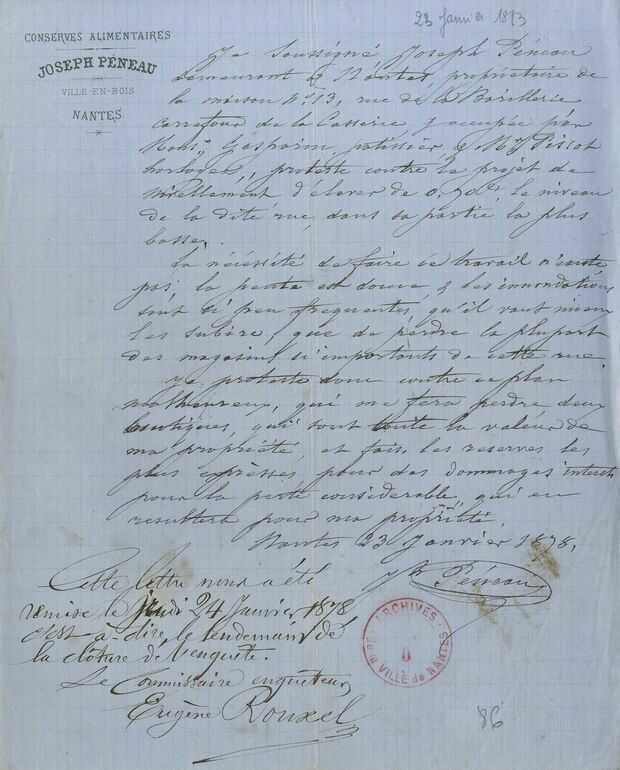 23 Janvier 1873
CONSERVES ALIMENTAIRES
JOSEPH PÉNEAU
VILLE-EN-BOIS
NANTES
Je soussigné Joseph Péneau
demeurant à Nantes, propriétaire de
la maison No 13, rue de la Barillerie
carrefour de la Casserie, occupée par
Gasparini, patissier, & Pissot
horloger, proteste contre le projet de
nivellement, d'élever de 0,70c le niveau
de la dite rue, dans sa partie la plus
basse.
La nécessité de faire ce travail n'existe
pas, la pente est douce & les innondations
sont si peu frequentes, qu'il vaut mieux
les subire, que de perdre la plupart
des magasins si importants de cette rue.
Je proteste donc contre ce plan
malheureux, qui me fera perdre deux
boutiques, qui sont toute la valeur de
ma propriété, et fais les reserves les
plus expresses pour des dommages interets
pour la perte considerable, qui en
resultera pour ma propriété.
Nantes 23 Janvier 1878.
Jh Péneau
Cette lettre nous a été
remise le jeudi 24 Janvier 1878
c'est à-dire, le lendemain de
la clôture de l'enquête.
Le Commissaire enquêteur,
Eugène Rouxel
ARCHIVES
DE LA VILLE de NANTES
86